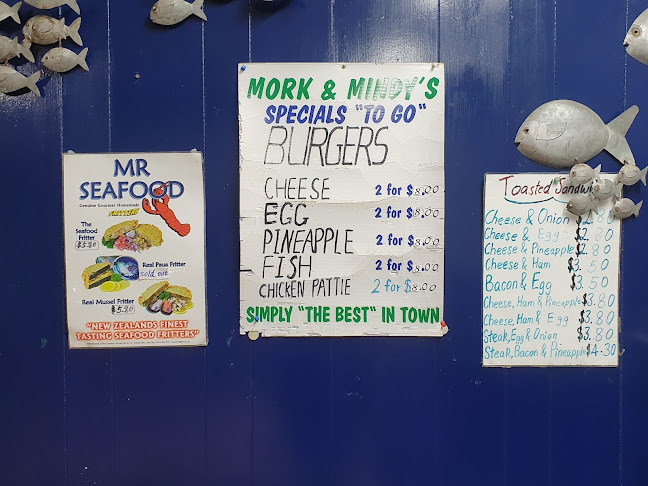 MR
SEAFOOD
Genuine Gourmet Homemade
FRITTERS
The
Seafood
Fritter
$5.80
Real Paua Fritter
Sold out
Real Mussel Fritter
$5.80
"NEW ZEALANDS FINEST
TASTING SEAFOOD FRITTERS"
MORK & MINDY'S
SPECIALS "TO GO"
BURGERS
CHEESE 2 for $8.00
EGG 2 for $8.00
PINEAPPLE 2 for $8.00
FISH 2 for $8.00
CHICKEN PATTIE 2 for $8.00
SIMPLY "THE BEST" IN TOWN
Toasted Sandwi
Cheese & Onion $2.80
Cheese & Egg $2.80
Cheese & Pineapple $2.80
Cheese & Ham $3.50
Bacon & Egg $3.50
Cheese, Ham & Pineapple $3.80
Cheese, Ham & Egg $3.80
Steak, Egg & Onion $3.80
Steak, Bacon & Pineapple $4.30